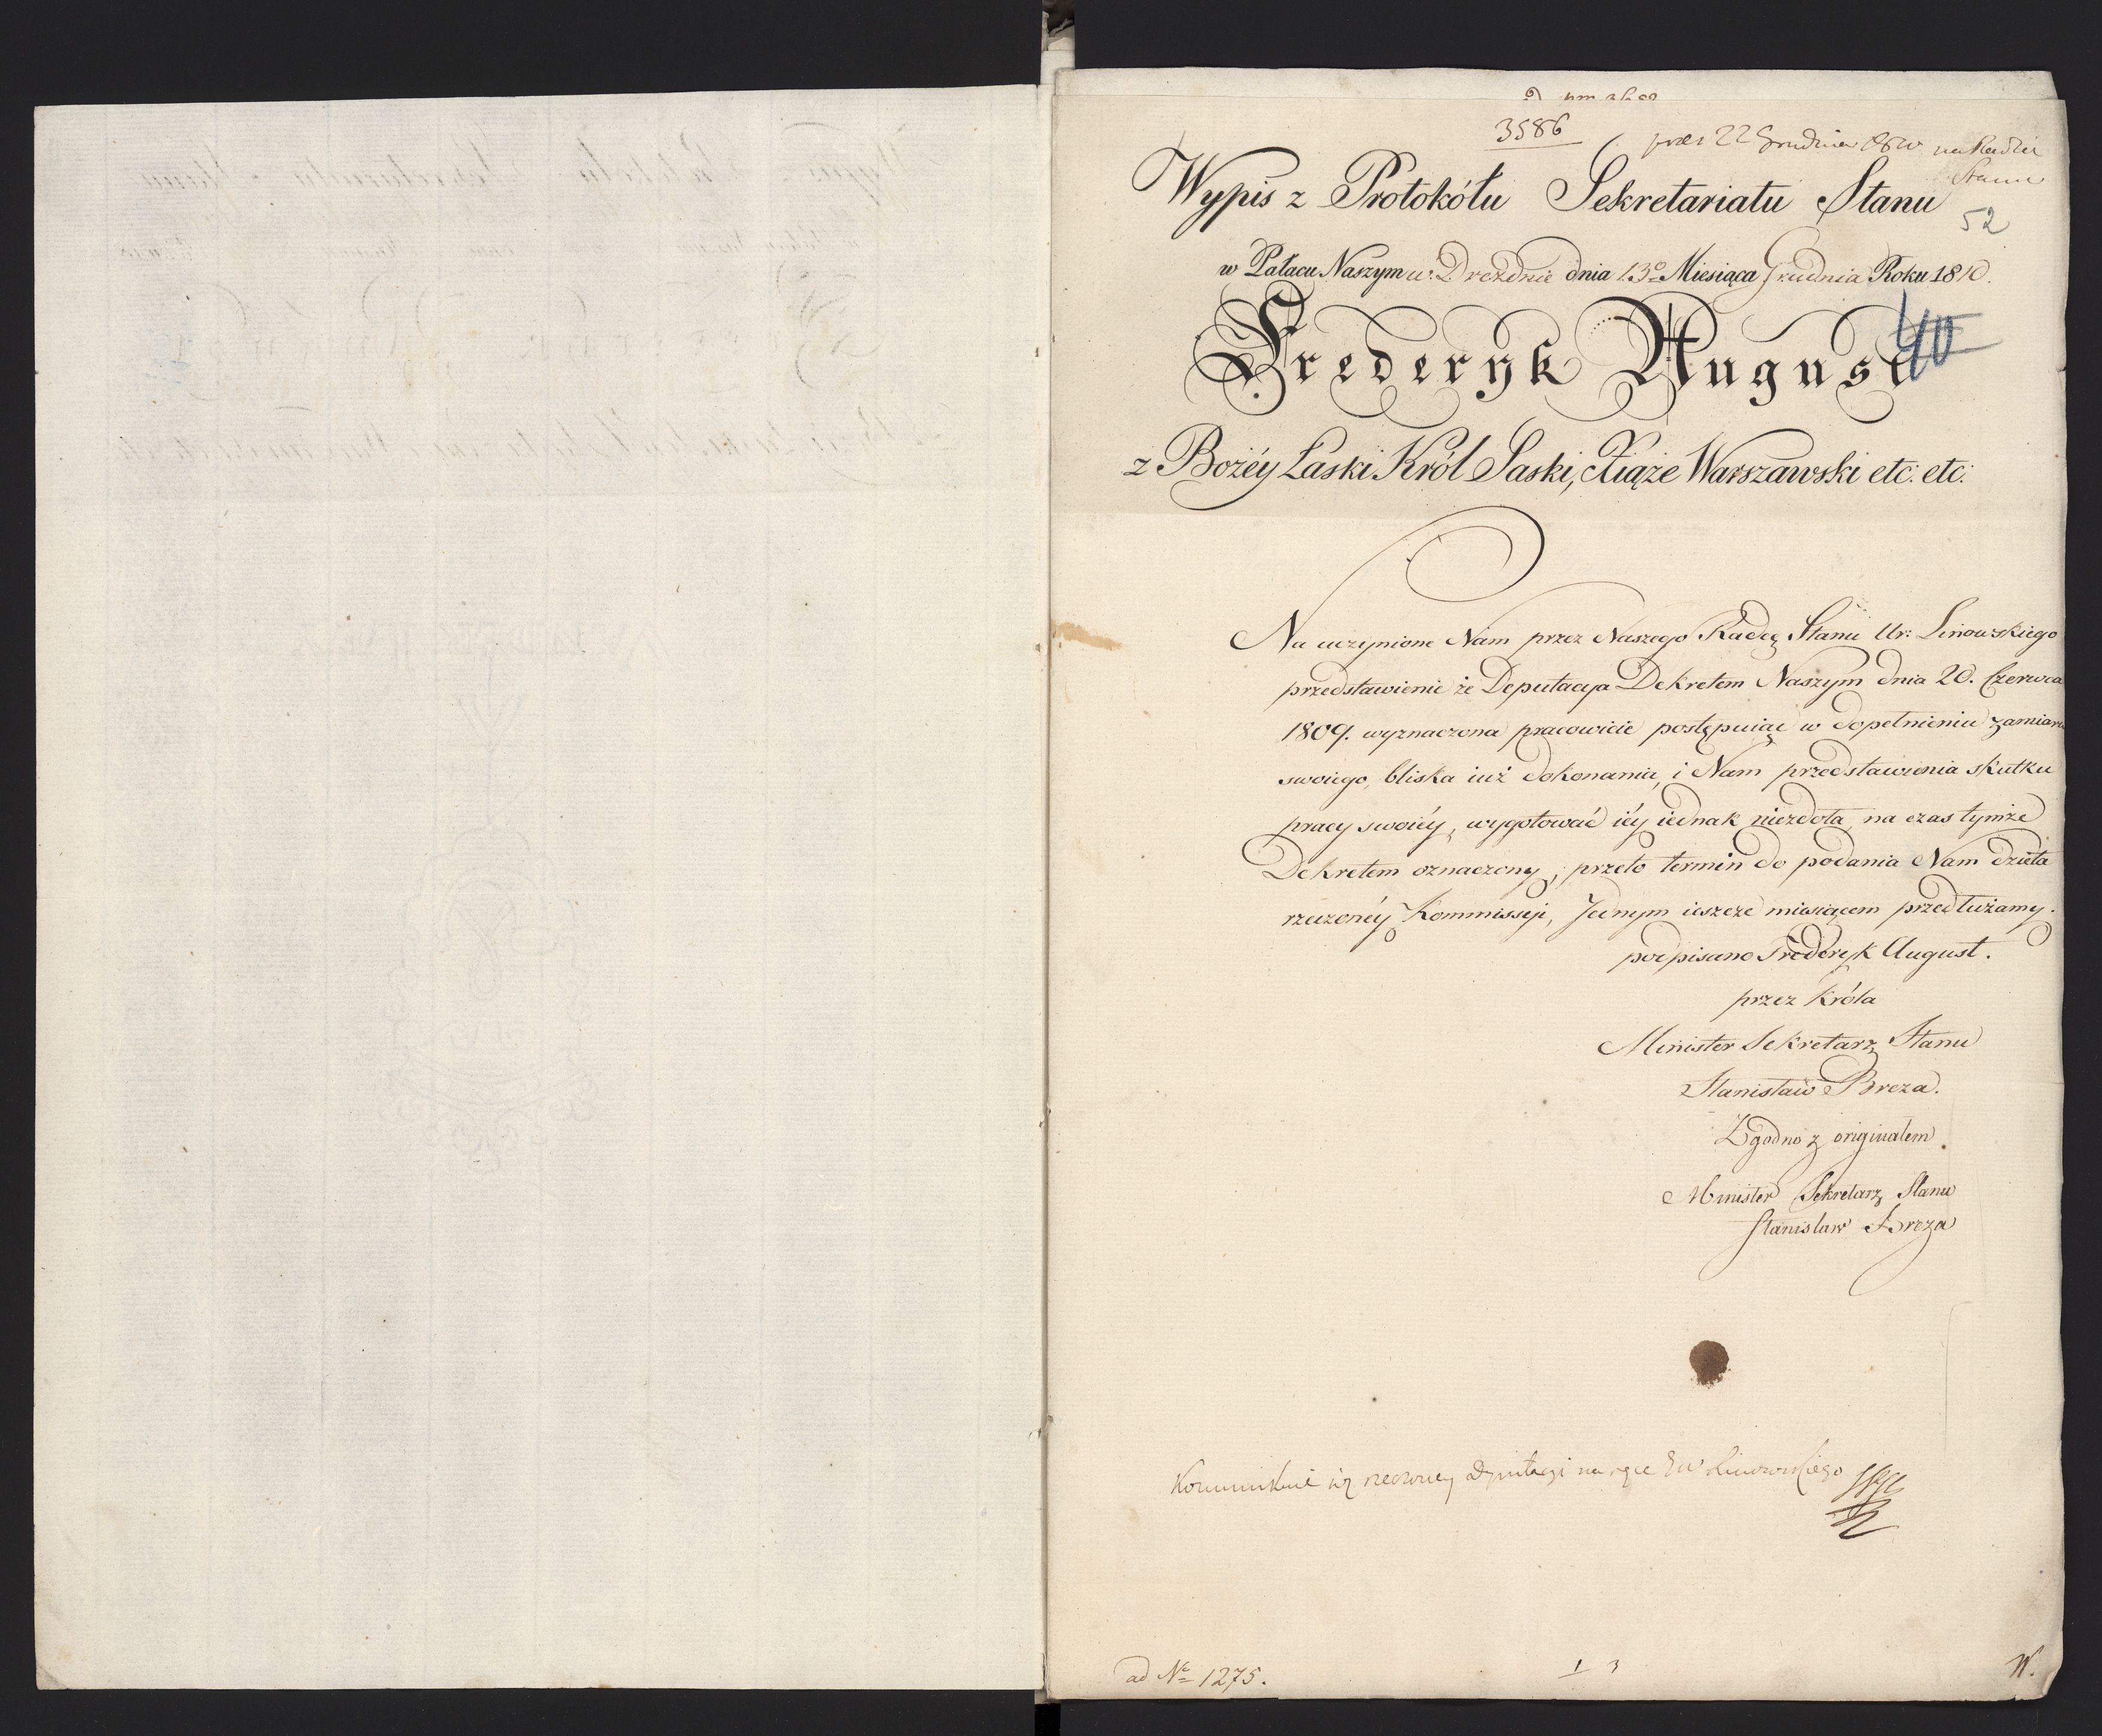 3586
prźs 22 Grudnia 1810 na Radzie
Stanu
Wypis z Protokółu Sekretariatu Stanu
52
w Pałacu Naszym w Dreźdnie dnia 13º Miesiąca Grudnia Roku 1810.
40
Frederyk August
z Bożéy Łaski Król Saski, Xiąże Warszawski etc: etc:
Na uczynione Nam przez Naszego Radcę Stanu Ur: Linowskiego
przedstawienie że Deputacya Dekretem Naszym dnia 20. Czerwca
1809. wyznaczona pracowicie postępuiąc w dopełnieniu zamiaru
swoiego, bliska iuż dokonania, i Nam przedstawienia skutku
pracy swoiéy, wygotować iéy iednak niezdoła, na czas tymże
Dekretem oznaczony, przeto termin do podania Nam dzieła
rzeczonéy Kommissyi, Jednym ieszcze miesiącem przedłużamy.
podpisano Frederyk August.
przez Króla
Minister Sekretarz Stanu
Stanisław Breza.
Zgodno z originałem.
Minister Sekretarz Stanu
Stanislaw Breza
rzeczoney Deputacyi na ręce Linowskiego
ad Nº 1275.
1 3
W.